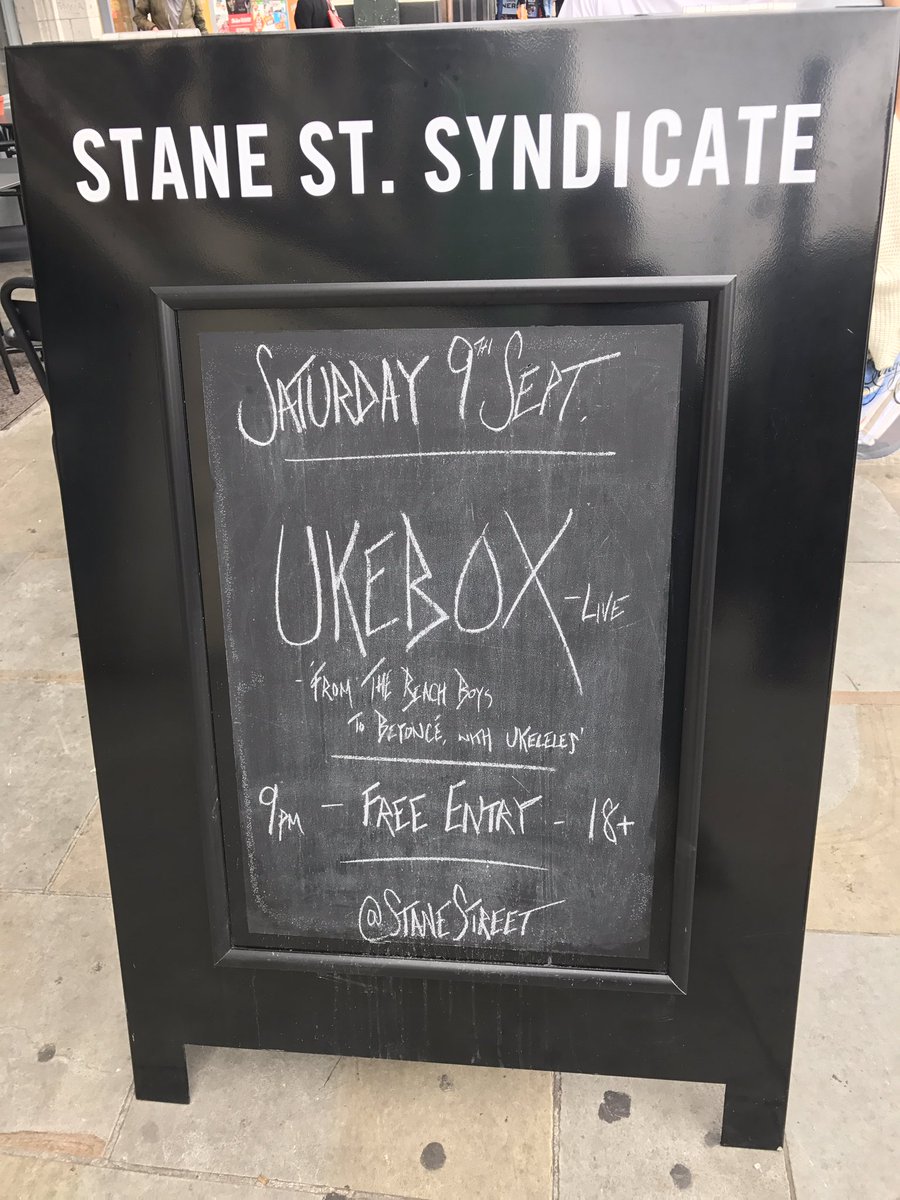 STANE ST. SYNDICATE
SATURDAY 9TH SEPT.
UKEBOX - LIVE
- 'FROM THE BEACH BOYS
TO BEYONCÉ, WITH UKELELES'
9PM - FREE ENTRY - 18+
@STANESTREET